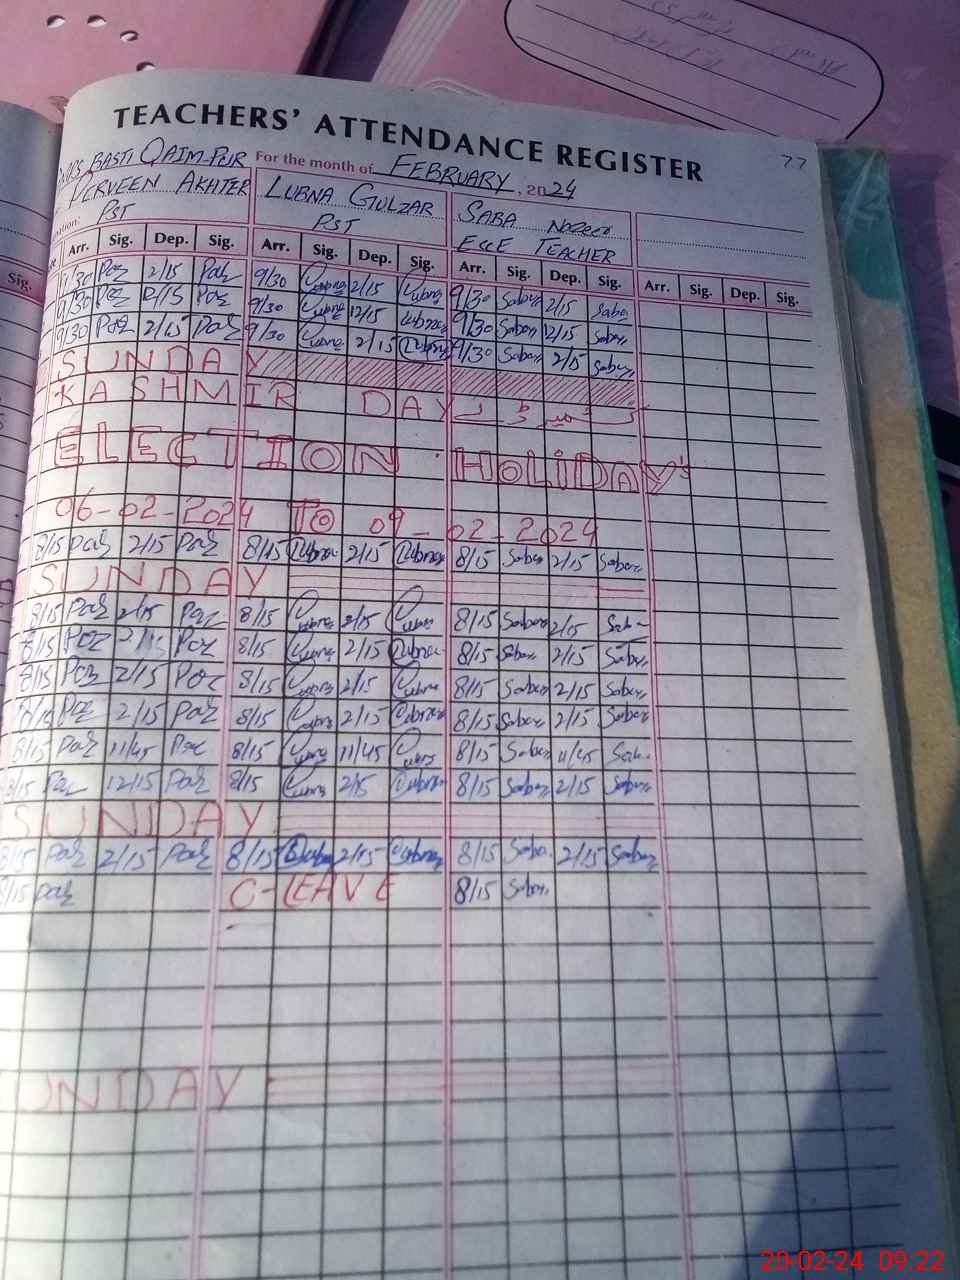 TEACHERS' ATTENDANCE REGISTER
77
BASTI QAIM-PUR For the month of FEBRUARY, 2024
PERVEEN AKHTER LUBNA GULZAR SABA Nazeer
PST PST ECCE TEACHER
Arr. Sig. Dep. Sig. Arr. Sig. Dep. Sig. Arr. Sig. Dep. Sig. Arr. Sig. Dep. Sig.
Sig.
9/30 Paz 2/15 Paz 9/30 Lubna 2/15 Lubna 9/30 Saba 2/15 Saba
9/30 Paz 12/15 Paz 9/30 Lubna 12/15 Lubna 9/30 Saba 12/15 Saba
9/30 Paz 2/15 Paz 9/30 Lubna 2/15 Lubna 9/30 Saba 2/15 Saba
SUNDAY
KASHMIR DAY
ELECTION HOLIDAY's
06-02-2024 TO 09-02-2024
8/15 Paz 2/15 Paz 8/15 Lubna 2/15 Lubna 8/15 Saba 2/15 Saba
SUNDAY
8/15 Paz 2/15 Paz 8/15 Lubna 2/15 Lubna 8/15 Saba 2/15 Saba
8/15 Paz 2/15 Paz 8/15 Lubna 2/15 Lubna 8/15 Saba 2/15 Saba
8/15 Paz 2/15 Paz 8/15 Lubna 2/15 Lubna 8/15 Saba 2/15 Saba
8/15 Paz 2/15 Paz 8/15 Lubna 2/15 Lubna 8/15 Saba 2/15 Saba
8/15 Paz 11/45 Paz 8/15 Lubna 11/45 Lubna 8/15 Saba 11/45 Saba
8/15 Paz 12/15 Paz 8/15 Lubna 2/15 Lubna 8/15 Saba 2/15 Saba
SUNDAY
8/15 Paz 2/15 Paz 8/15 Lubna 2/15 Lubna 8/15 Saba 2/15 Saba
8/15 Paz C-LEAVE 8/15 Saba
UNDAY
20-02-24 09:22